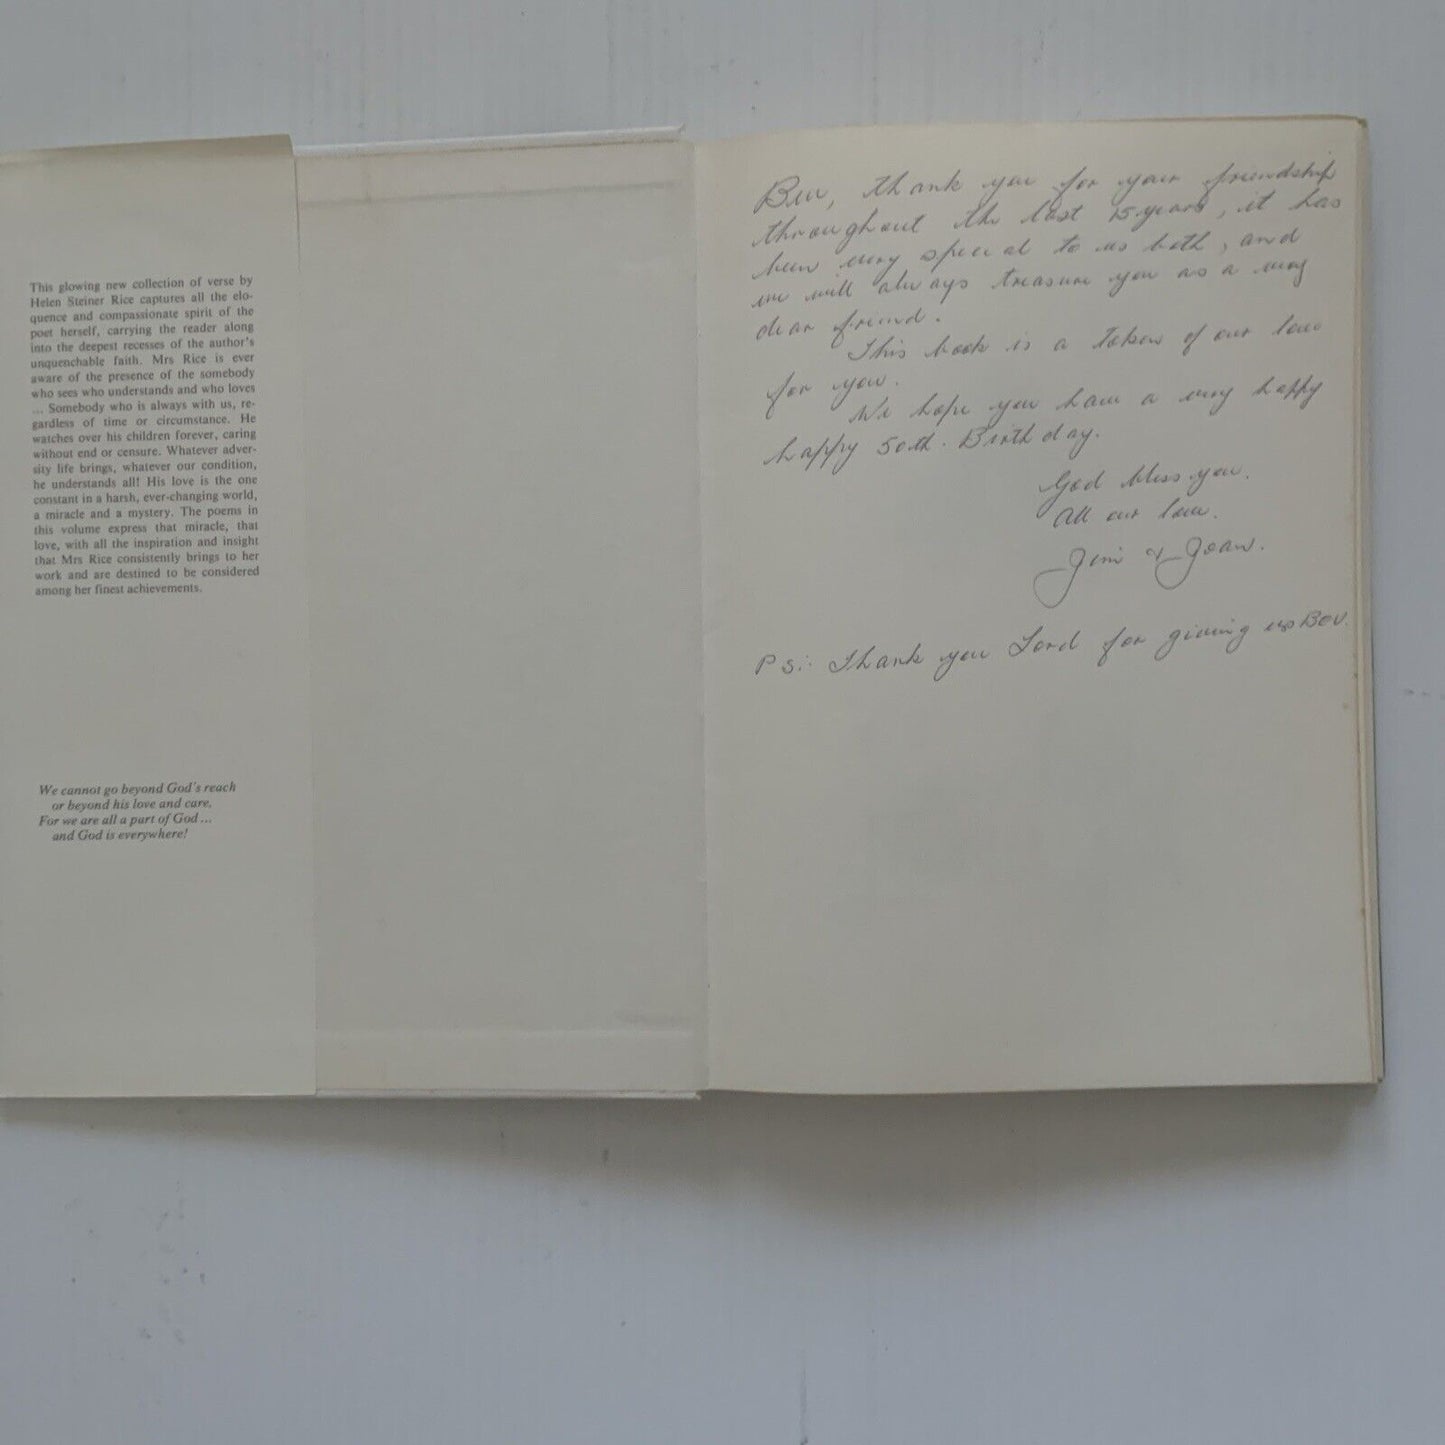 This glowing new collection of verse by
Helen Steiner Rice captures all the elo-
quence and compassionate spirit of the
poet herself, carrying the reader along
into the deepest recesses of the author's
unquenchable faith. Mrs Rice is ever
aware of the presence of the somebody
who sees who understands and who loves
... Somebody who is always with us, re-
gardless of time or circumstance. He
watches over his children forever, caring
without end or censure. Whatever adver-
sity life brings, whatever our condition,
he understands all! His love is the one
constant in a harsh, ever-changing world,
a miracle and a mystery. The poems in
this volume express that miracle, that
love, with all the inspiration and insight
that Mrs Rice consistently brings to her
work and are destined to be considered
among her finest achievements.
We cannot go beyond God's reach
or beyond his love and care,
For we are all a part of God ...
and God is everywhere!
Bev, thank you for your friendship
throughout the last 15 years, it has
been very special to us both, and
we will always treasure you as a very
dear friend.
This book is a token of our love
for you.
We hope you have a very happy
happy 50th. Birthday.
God bless you.
All our love.
Jim & Joan.
PS:. Thank you Lord for giving us Bev.